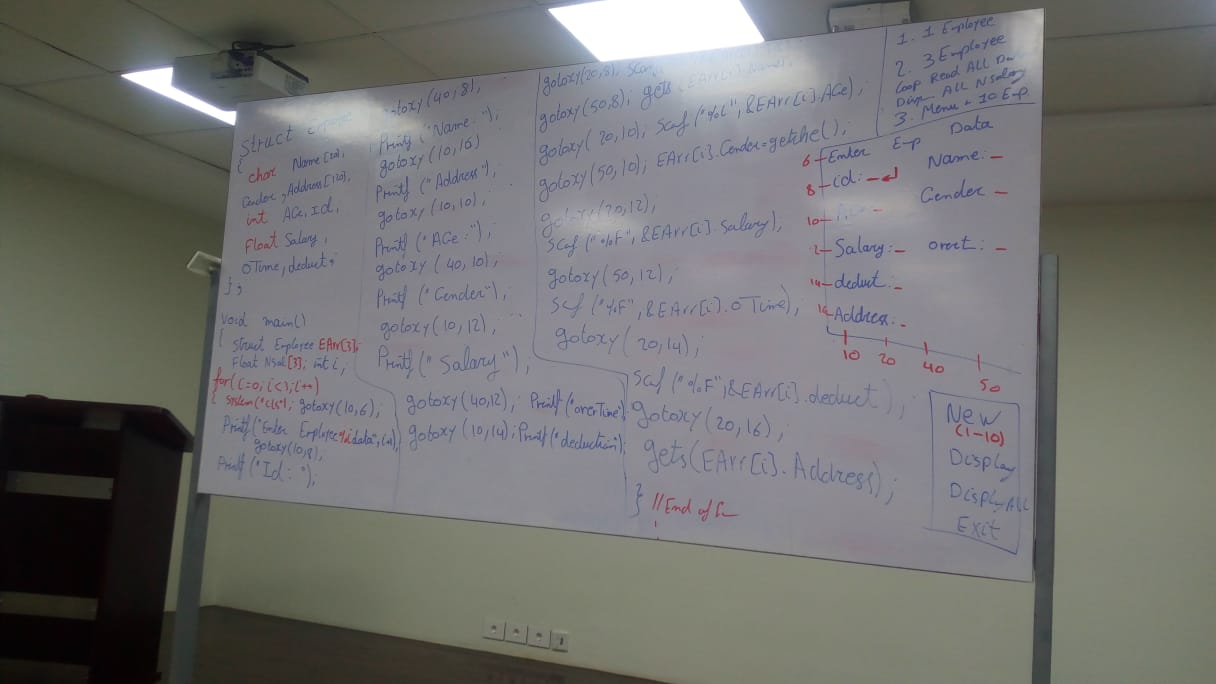 struct Employee
{
char Name[20],
Gender, Address[120],
int AGe, Id,
Float Salary,
oTime, deduct;
};
void main()
{ struct Employee EArr[3];
Float NSal[3]; int i;
for(i=0; i<3; i++)
{ system("cls"); gotoxy(10,6);
Printf("Enter Employee %i data", i+1),
gotoxy(10,8);
Printf("Id: ");
gotoxy(40,8);
Printf("Name: ");
gotoxy(10,16)
Printf("Address");
gotoxy(10,10);
Printf("AGe:");
gotoxy(40,10);
Printf("Gender");
gotoxy(10,12);
Printf("Salary");
gotoxy(40,12); Printf("overTime")
gotoxy(10,14); Printf("deduction");
gotoxy(20,8);
gotoxy(50,8); gets(EArr[i].Name);
gotoxy(20,10); scaf("%i", &EArr[i].AGe);
gotoxy(50,10); EArr[i].Gender=getche();
gotoxy(20,12);
scaf("%F", &EArr[i].Salary);
gotoxy(50,12);
scaf("%F", &EArr[i].oTime);
gotoxy(20,14);
scaf("%F", &EArr[i].deduct);
gotoxy(20,16);
gets(EArr[i].Address);
} //End of
1. 1 Employee
2. 3 Employee
Loop Read ALL
ALL NSalary
3. Menu + 10 Emp
6 Enter Emp Data
8 id: Name:
Gender
10
Salary: overt:
14 deduct:
Address:
10 20 40 50
New
(1-10)
Display
DisplayALL
Exit